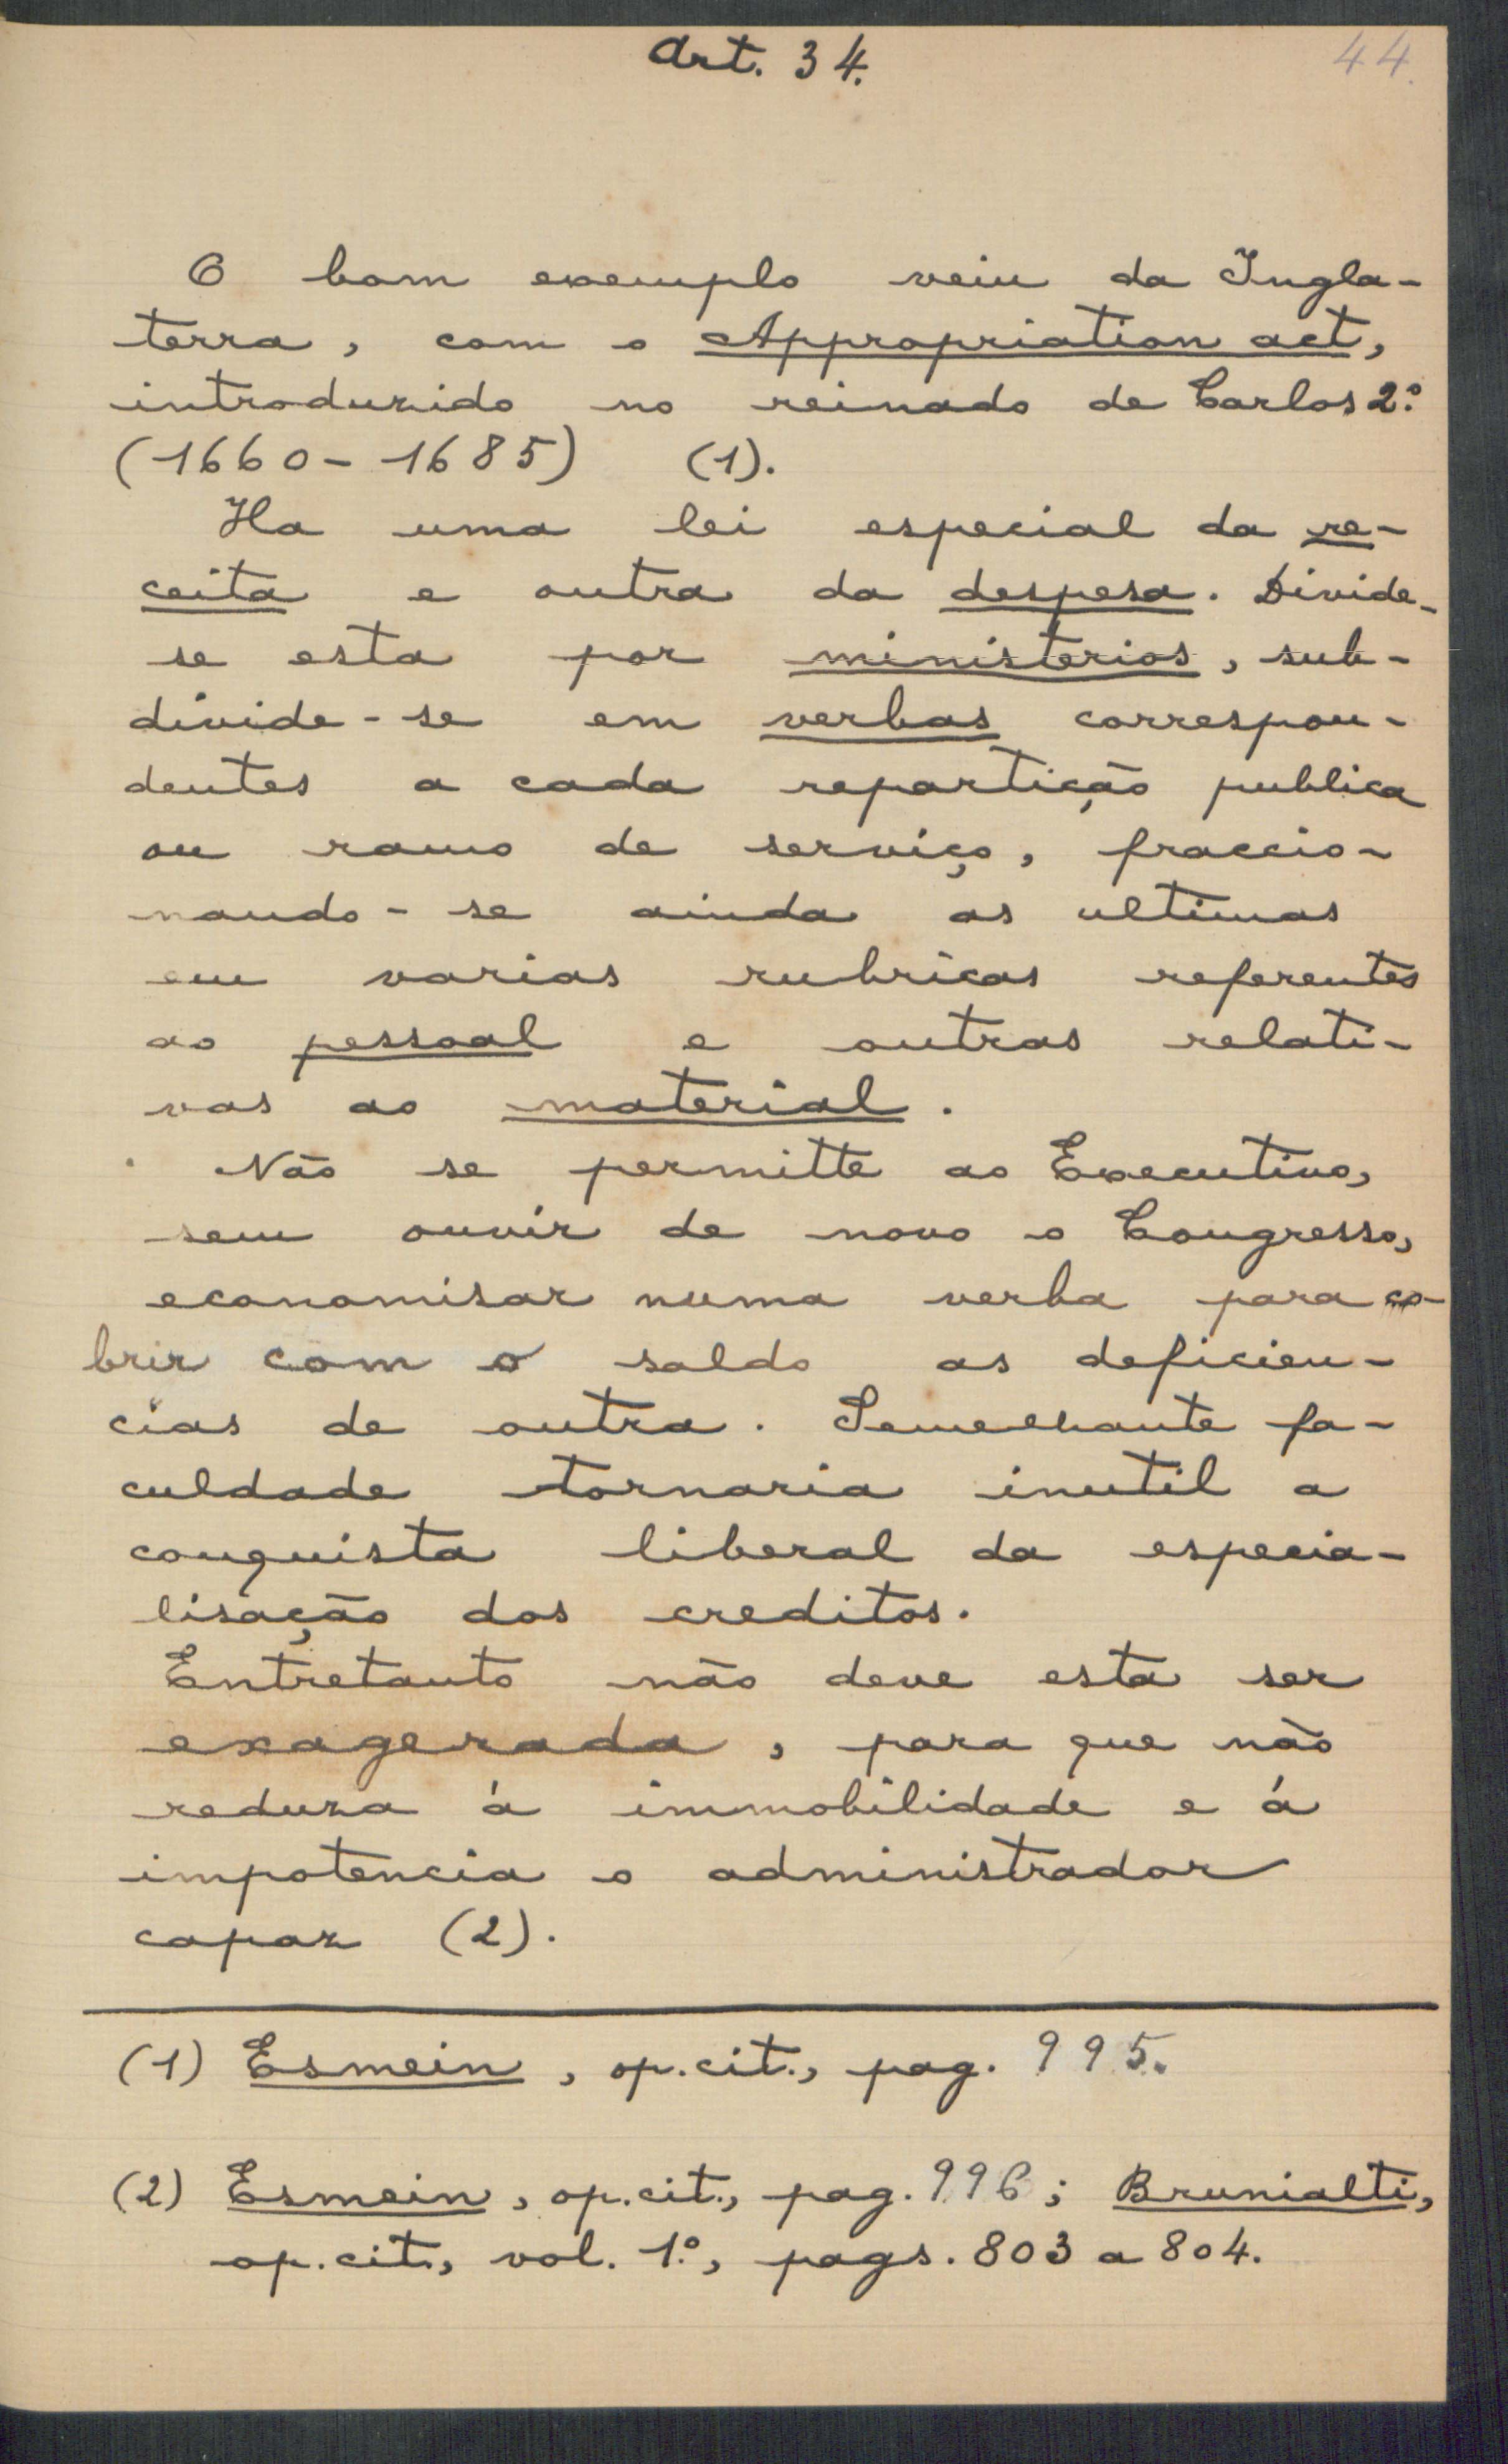 Art. 34.
44.
O bom exemplo veiu da Ingla-
terra, com o Appropriation act,
introduzido no reinado de Carlos 2.º
(1660-1685) (1).
Ha uma lei especial da re-
ceita e outra da despesa. Divide-
se esta por ministerios, sub-
divide-se em verbas correspon-
dentes a cada repartição publica
ou ramo de serviço, fraccio-
nando-se ainda as ultimas
em varias rubricas referentes
ao pessoal e outras relati-
vas ao material.
Não se permitte ao Executivo,
sem ouvir de novo o Congresso,
economisar numa verba para co-
brir com o saldo as deficien-
cias de outra. Semelhante fa-
culdade tornaria inutil a
conquista liberal da especia-
lisação dos creditos.
Entretanto não deve esta ser
exagerada, para que não
reduza á immobilidade e á
impotencia o administrador
capaz (2).
(1) Esmein, op. cit., pag. 995.
(2) Esmein, op. cit., pag. 996; Brunialti,
op. cit., vol. 1.º, pags. 803 a 804.